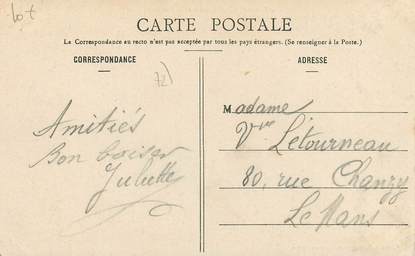 lot
CARTE POSTALE
La Correspondance au recto n'est pas acceptée par tous les pays étrangers. (Se renseigner à la Poste.)
CORRESPONDANCE
ADRESSE
72)
Amitiés
Bon baiser
Juliette
Madame
Vve Létourneau
80, rue Chanzy
Le Mans